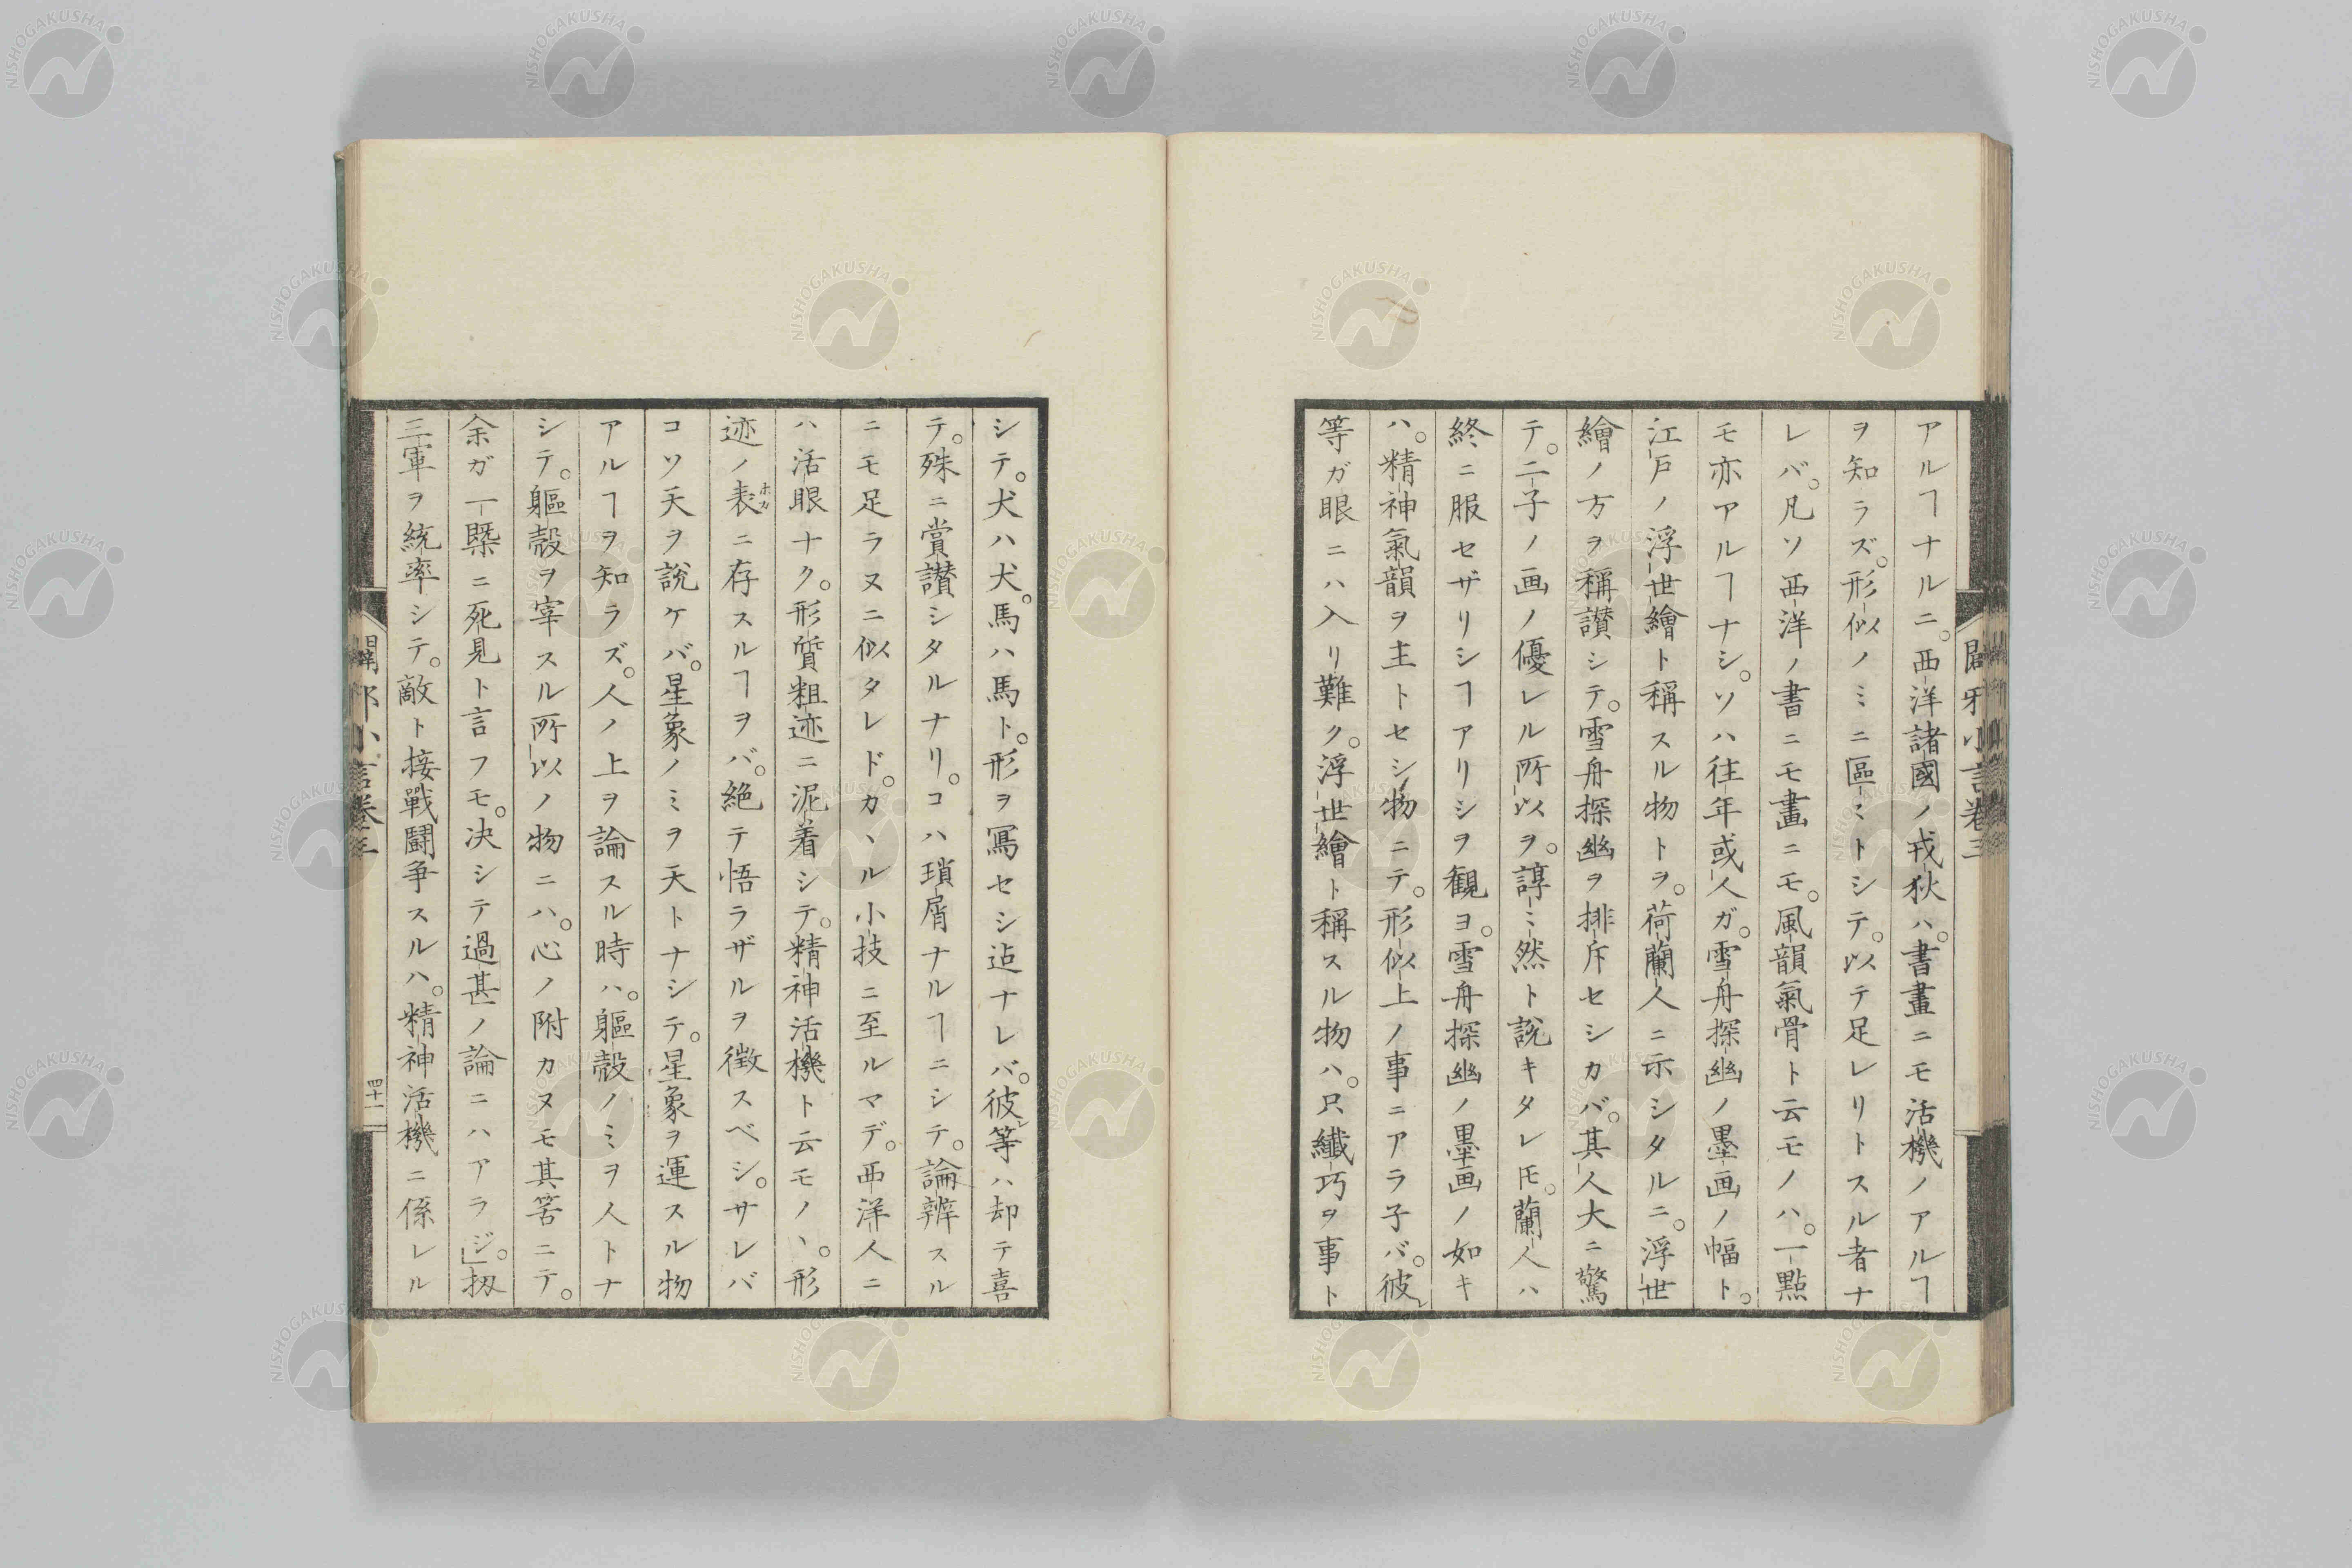 闢邪小言卷三
アルヿナルニ。西洋諸國ノ戎狄ハ。書畫ニモ活機ノアルヿ
ヲ知ラズ。形似ノミニ區〻トシテ。以テ足レリトスル者ナ
レバ。凡ソ西洋ノ書ニモ畫ニモ。風韻氣骨ト云モノハ。一點
モ亦アルヿナシ。ソハ往年或人ガ。雪舟探幽ノ墨画ノ幅ト。
江戸ノ浮世繪ト稱スル物トヲ。荷蘭人ニ示シタルニ。浮世
繪ノ方ヲ稱讃シテ。雪舟探幽ヲ排斥セシカバ。其人大ニ驚
テ。二子ノ画ノ優レル所以ヲ。諄〻然ト説キタレ𪜈。蘭人ハ
終ニ服セザリシヿアリシヲ觀ヨ。雪舟探幽ノ墨画ノ如キ
ハ。精神氣韻ヲ主トセシ物ニテ。形似上ノ事ニアラ子バ。彼レ
等ガ眼ニハ入リ難ク。浮世繪ト稱スル物ハ。只纖巧ヲ事ト
シテ。犬ハ犬。馬ハ馬ト。形ヲ寫セシ迠ナレバ。彼レ等ハ却テ喜
テ。殊ニ賞讃シタルナリ。コハ瑣屑ナルヿニシテ。論辨スル
ニモ足ラヌニ似タレド。カヽル小技ニ至ルマデ。西洋人ニ
ハ活眼ナク。形質粗迹ニ泥着シテ。精神活機ト云モノヽ。形
迹ノ表ホカニ存スルヿヲバ。絶テ悟ラザルヲ徴スベシ。サレバ
コソ天ヲ説ケバ。星象ノミヲ天トナシテ。星象ヲ運スル物
アルヿヲ知ラズ。人ノ上ヲ論スル時ハ。軀殻ノミヲ人トナ
シテ。軀殻ヲ宰スル所以ノ物ニハ。心ノ附カヌモ其筈ニテ。
余ガ一槩ニ死見ト言フモ。决シテ過甚ノ論ニハアラジ。」扨
三軍ヲ統率シテ。敵ト接戰鬪争スルハ。精神活機ニ係レル
闢邪小言卷三
四十一